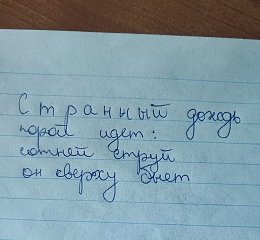 Странный дождь
порой идет:
сотней струй
он сверху бьет